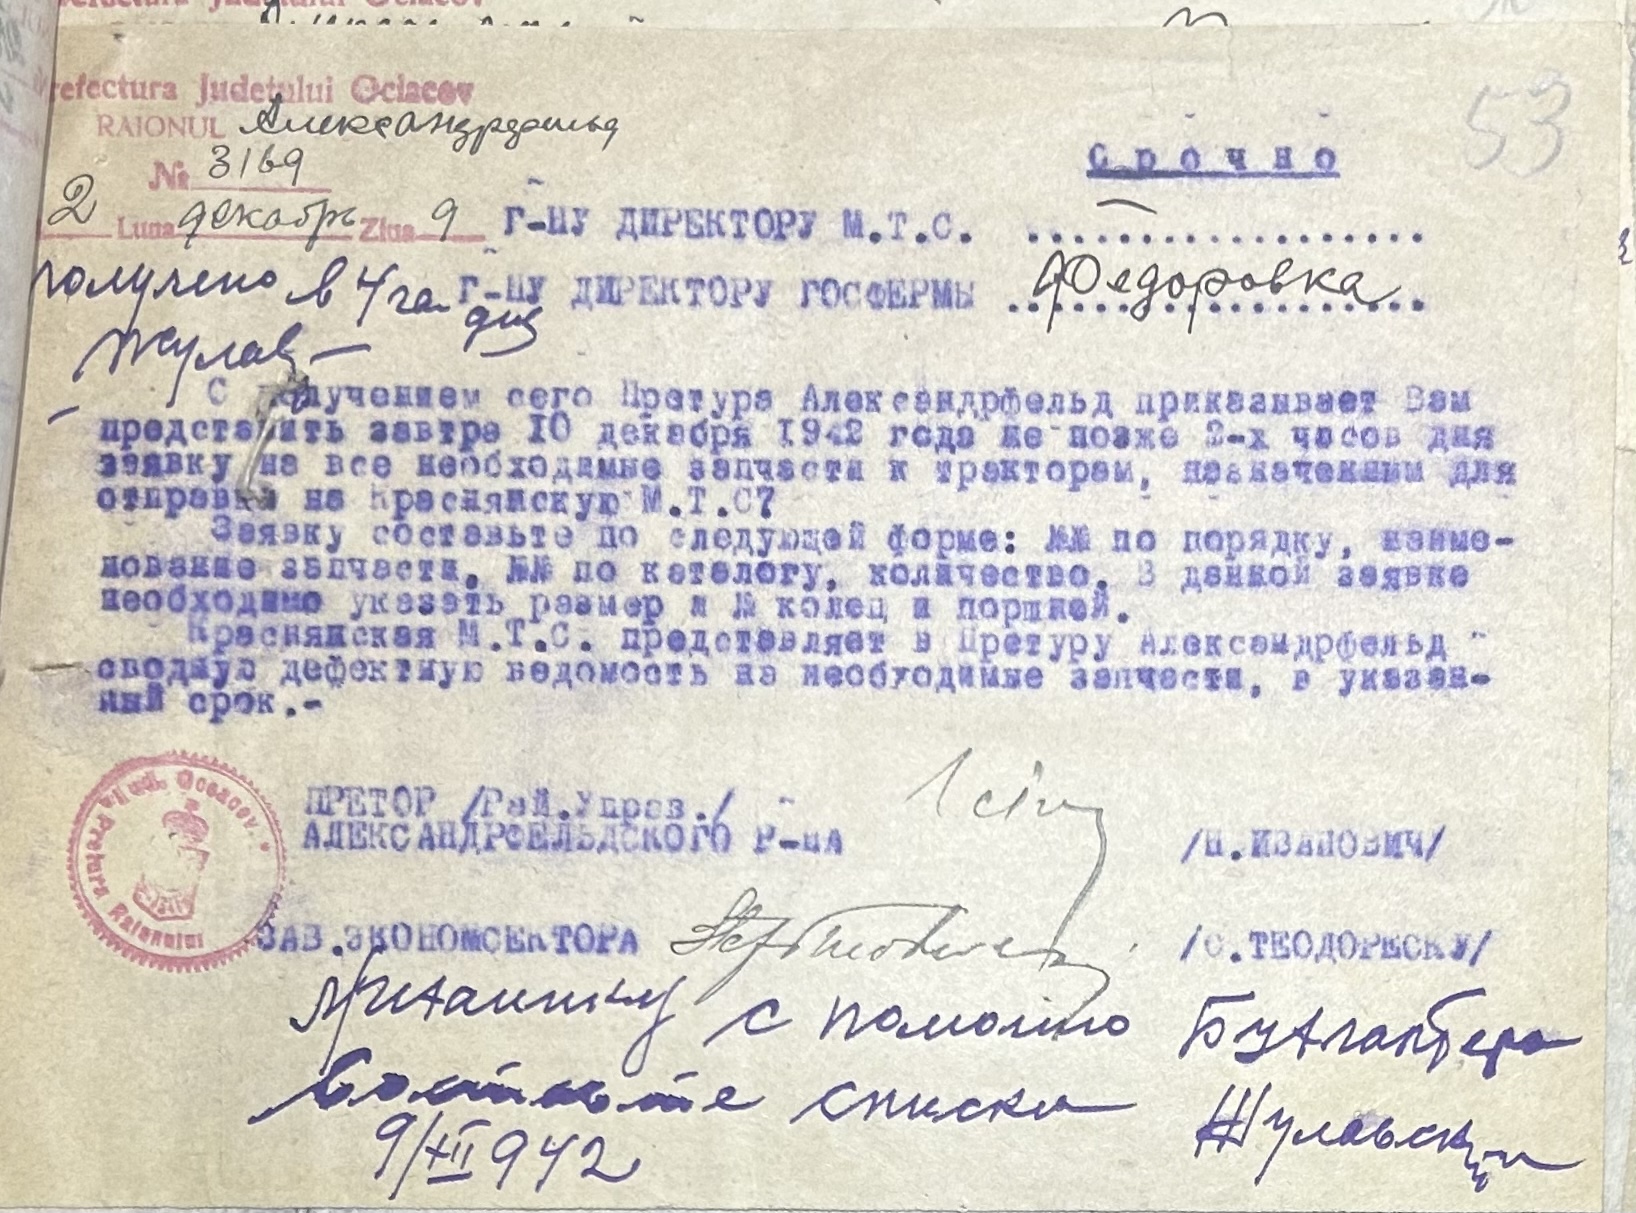 Prefectura Judetului Ociacov
RAIONUL Александрфельд
№ 3169
2 Luna декабрь Ziua 9
53
Срочно
Г-НУ ДИРЕКТОРУ М.Т.С. ..................
Г-НУ ДИРЕКТОРУ ГОСФЕРМЫ Федоровка
получено в 4 час дня
Жулав
С получением сего Претура Александрфельд приказывает Вам
представить завтра 10 декабря 1942 года не позже 2-х часов дня
заявку на все необходимые запчасти к тракторам, назначенным для
отправки на Краснянскую М.Т.С7
Заявку составьте по следующей форме: №№ по порядку, наиме-
нование запчасти, №№ по каталогу, количество. В данной заявке
необходимо указать размер и № колец и поршней.
Краснянская М.Т.С. представляет в Претуру Александрфельд
сводную дефектную ведомость на необходимые запчасти, в указан-
ный срок.-
Pretura Raionului Jud. Oceacov
ПРЕТОР /Рай.Управ./
АЛЕКСАНДРФЕЛЬДСКОГО Р-НА /Н.ИВАНОВИЧ/
ЗАВ.ЭКОНОМСЕКТОРА /С.ТЕОДОРЕСКУ/
Механику с помощю Бухгалтера
списки
Жулавский
9/XII 942